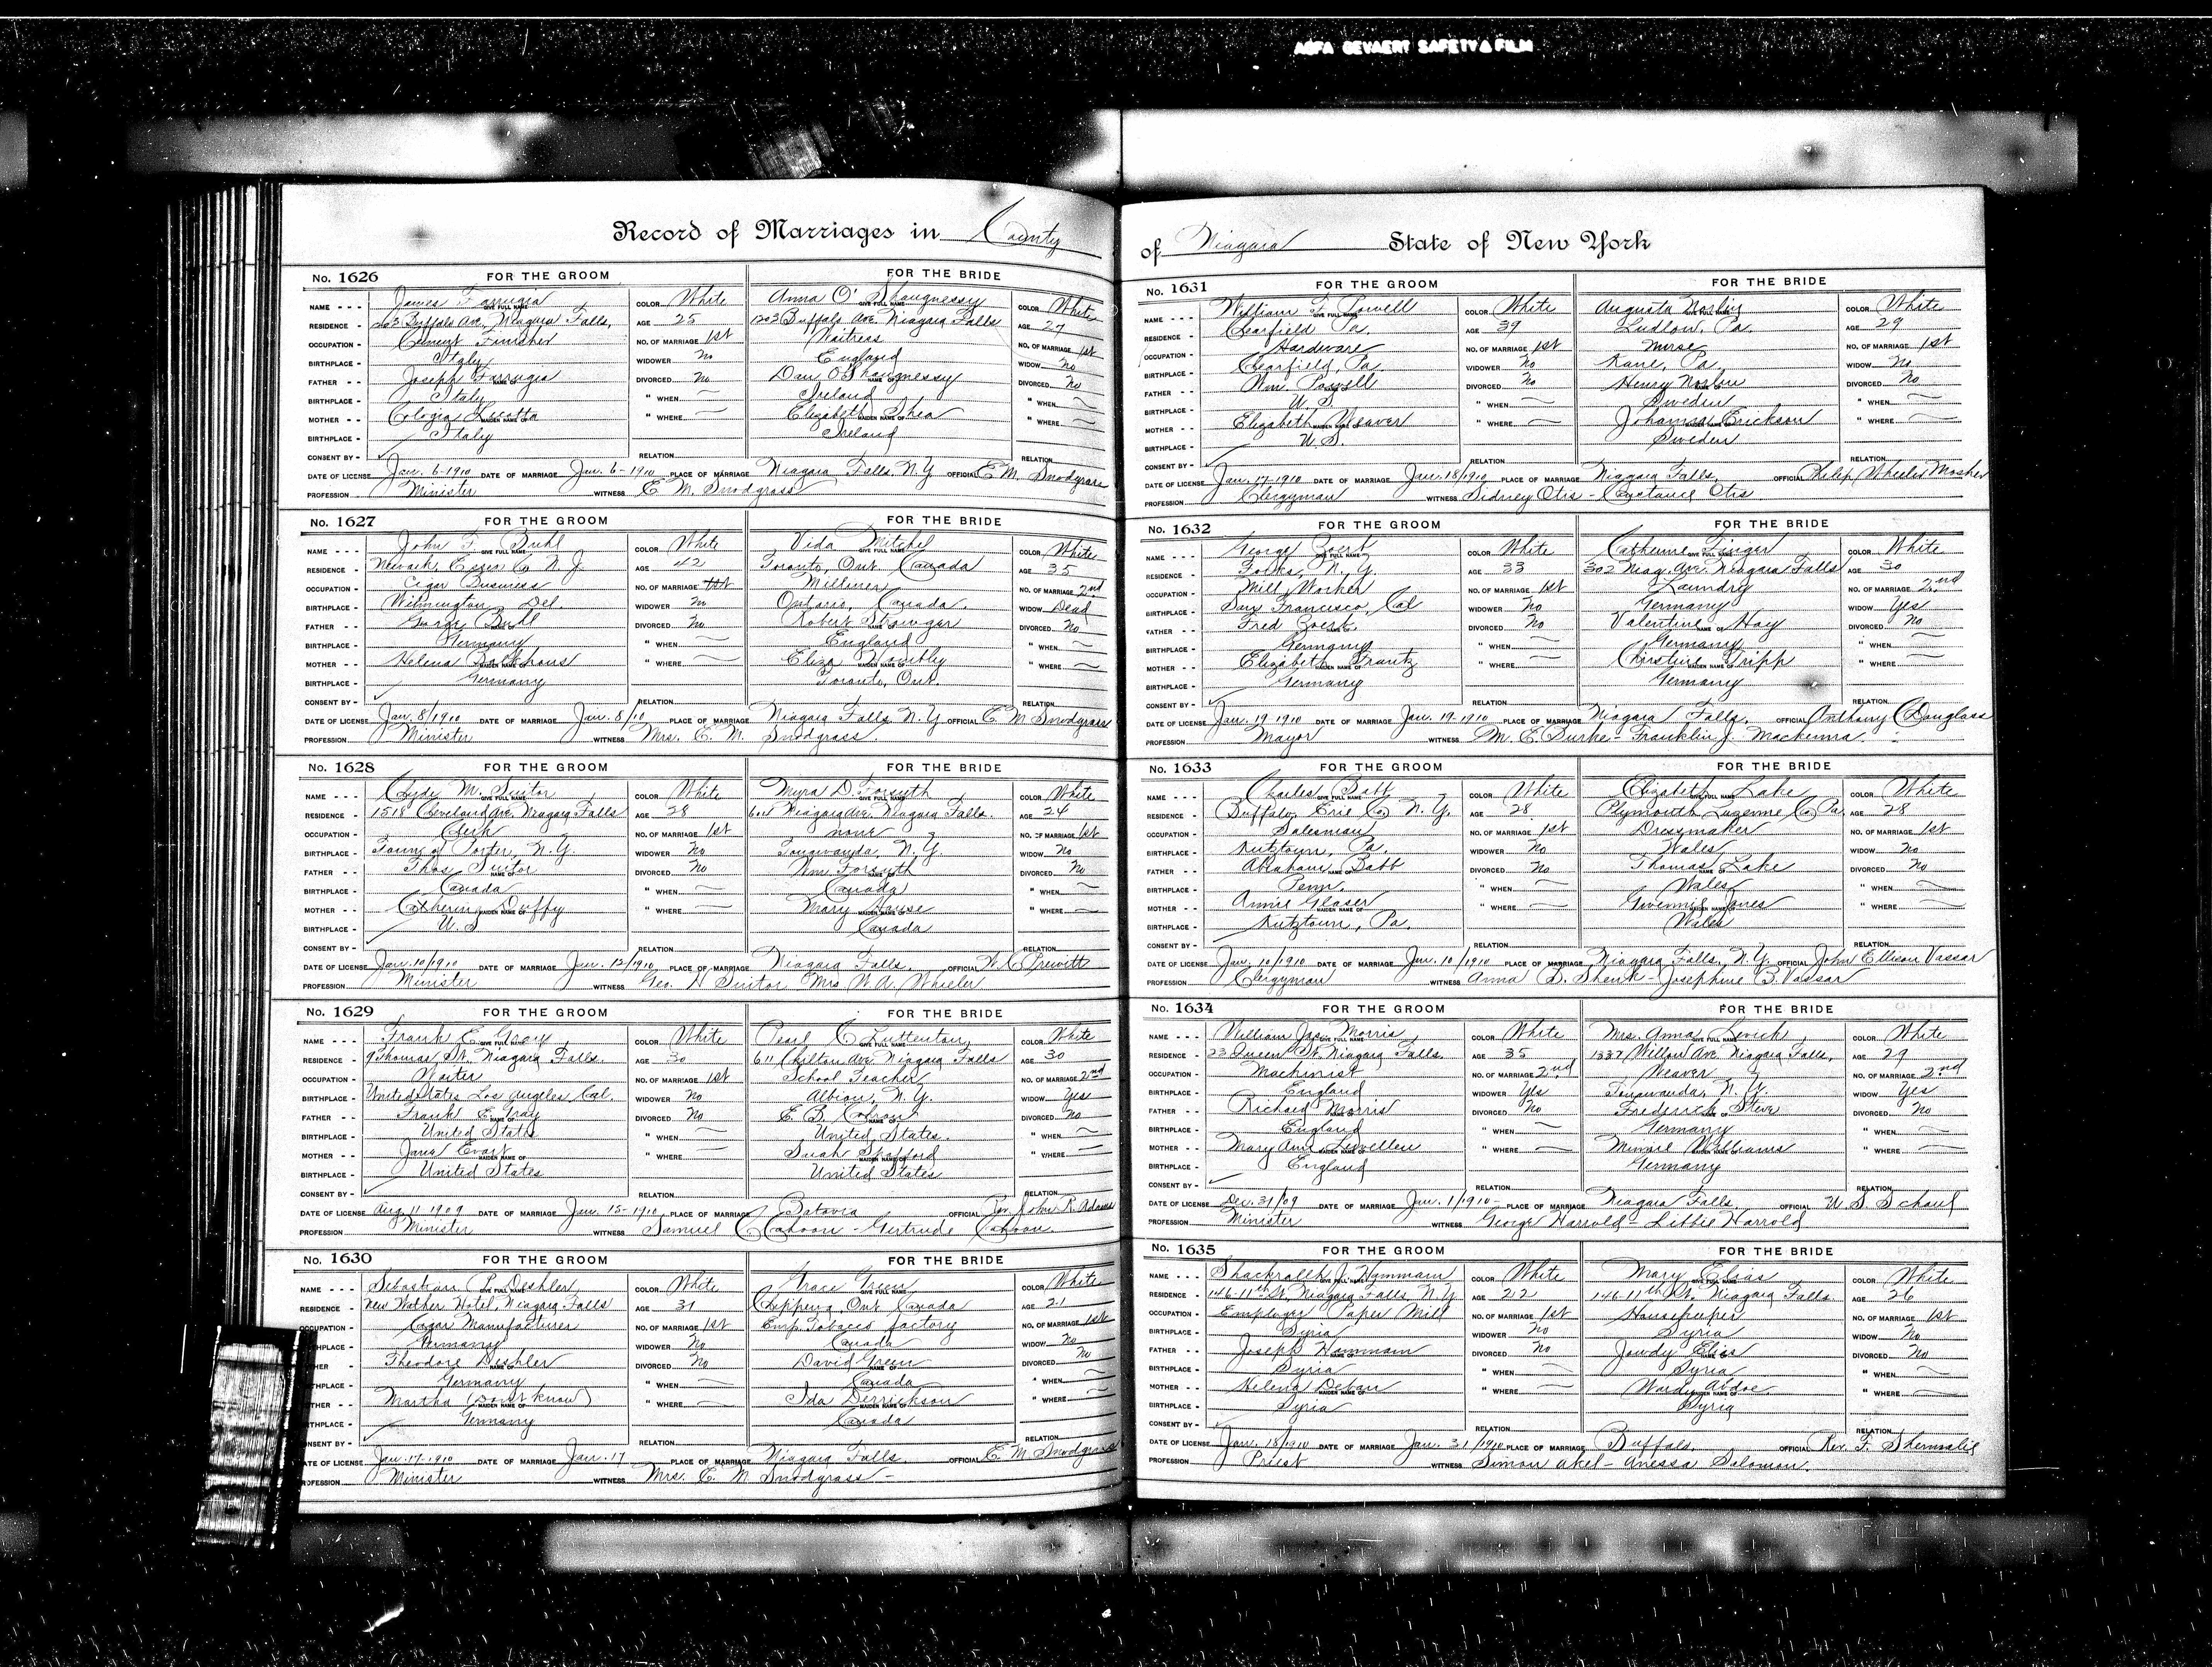 AGFA GEVAERT SAFETY FILM
Record of Marriages in County
of Niagara State of New York
No. 1626 FOR THE GROOM FOR THE BRIDE
NAME James Farrugia COLOR White Anna O'Shaugnessy COLOR White
RESIDENCE 1202 Buffalo Ave. Niagara Falls, AGE 25 1202 Buffalo Ave. Niagara Falls AGE 27
OCCUPATION Cement Finisher NO. OF MARRIAGE 1st Waitress NO. OF MARRIAGE 1st
BIRTHPLACE Italy WIDOWER No England WIDOW No
FATHER Joseph Farrugia DIVORCED No Dan O'Shaugnessy DIVORCED No
BIRTHPLACE Italy " WHEN Ireland " WHEN
MOTHER Licotta " WHERE Elizabeth Shea " WHERE
BIRTHPLACE Italy Ireland
CONSENT BY RELATION RELATION
DATE OF LICENSE Jan. 6-1910 DATE OF MARRIAGE Jan. 6-1910 PLACE OF MARRIAGE Niagara Falls, N.Y. OFFICIAL E. M. Snodgrass
PROFESSION Minister WITNESS E. M. Snodgrass
No. 1627 FOR THE GROOM FOR THE BRIDE
NAME John F. Buhl COLOR White Vida Mitchel COLOR White
RESIDENCE Newark, Essex Co N. J. AGE 42 Toronto, Ont Canada AGE 35
OCCUPATION Cigar Business NO. OF MARRIAGE 1st Milliner NO. OF MARRIAGE 2nd
BIRTHPLACE Wilmington, Del. WIDOWER No Ontario, Canada. WIDOW Dead
FATHER George Buhl DIVORCED No Robert DIVORCED No
BIRTHPLACE Germany " WHEN England " WHEN
MOTHER Helena " WHERE Eliza " WHERE
BIRTHPLACE Germany Toronto, Ont.
CONSENT BY RELATION RELATION
DATE OF LICENSE Jan. 8/1910 DATE OF MARRIAGE Jan. 8/10 PLACE OF MARRIAGE Niagara Falls N.Y. OFFICIAL E. M. Snodgrass
PROFESSION Minister WITNESS Mrs. E. M. Snodgrass.
No. 1628 FOR THE GROOM FOR THE BRIDE
NAME Clyde M. Suitor COLOR White Myra D. Forsyth COLOR White
RESIDENCE 1518 Cleveland Ave. Niagara Falls AGE 28 Niagara Ave. Niagara Falls. AGE 24
OCCUPATION Clerk NO. OF MARRIAGE 1st none NO. OF MARRIAGE 1st
BIRTHPLACE Town of Porter, N.Y. WIDOWER No Tonawanda, N.Y. WIDOW No
FATHER Thos. Suitor DIVORCED No Wm. Forsyth DIVORCED No
BIRTHPLACE Canada " WHEN Canada " WHEN
MOTHER Catherine Duffy " WHERE Mary House " WHERE
BIRTHPLACE U. S Canada
CONSENT BY RELATION RELATION
DATE OF LICENSE Jan. 10/1910 DATE OF MARRIAGE Jan. 12/1910 PLACE OF MARRIAGE Niagara Falls. OFFICIAL W. C. Prewitt
PROFESSION Minister WITNESS Geo. H Suitor Mrs W. A. Wheeler
No. 1629 FOR THE GROOM FOR THE BRIDE
NAME Frank E. Gray COLOR White Pearl C. Luttenton COLOR White
RESIDENCE 9 Thomas St. Niagara Falls. AGE 30 611 Chilton Ave Niagara Falls AGE 30
OCCUPATION Waiter NO. OF MARRIAGE 1st School Teacher NO. OF MARRIAGE 2nd
BIRTHPLACE United States Los Angeles Cal. WIDOWER No Albion, N.Y. WIDOW Yes
FATHER Frank E. Gray DIVORCED No E. B. DIVORCED No
BIRTHPLACE United States " WHEN United States. " WHEN
MOTHER Jane Evart " WHERE Spafford " WHERE
BIRTHPLACE United States United States
CONSENT BY RELATION RELATION
DATE OF LICENSE Aug 11 1909 DATE OF MARRIAGE Jan. 15-1910 PLACE OF MARRIAGE Batavia OFFICIAL Rev. John R. Adams
PROFESSION Minister WITNESS Samuel Cahoon - Gertrude Cahoon
No. 1630 FOR THE GROOM FOR THE BRIDE
NAME Sebastian P. Deshler COLOR White Grace Green COLOR White
RESIDENCE New Walker Hotel, Niagara Falls AGE 31 Chippewa, Ont Canada AGE 21
OCCUPATION Cigar Manufacturer NO. OF MARRIAGE 1st Emp. Tobacco factory NO. OF MARRIAGE 1st
BIRTHPLACE Germany WIDOWER No Canada WIDOW No
FATHER Theodore Deshler DIVORCED No David Green DIVORCED No
BIRTHPLACE Germany " WHEN Canada " WHEN
MOTHER Martha (Dont know) " WHERE Ida Derrickson " WHERE
BIRTHPLACE Germany Canada
CONSENT BY RELATION RELATION
DATE OF LICENSE Jan. 17-1910 DATE OF MARRIAGE Jan. 17 PLACE OF MARRIAGE Niagara Falls OFFICIAL E. M. Snodgrass
PROFESSION Minister WITNESS Mrs. E. M Snodgrass -
No. 1631 FOR THE GROOM FOR THE BRIDE
NAME William F. Powell COLOR White Augusta COLOR White
RESIDENCE Clearfield Pa. AGE 39 Ludlow, Pa. AGE 29
OCCUPATION Hardware NO. OF MARRIAGE 1st Nurse NO. OF MARRIAGE 1st
BIRTHPLACE Clearfield, Pa. WIDOWER No Kane, Pa. WIDOW No
FATHER Wm. Powell DIVORCED No Henry DIVORCED No
BIRTHPLACE U. S. " WHEN Sweden " WHEN
MOTHER Elizabeth Weaver " WHERE Johanna Erickson " WHERE
BIRTHPLACE U. S. Sweden
CONSENT BY RELATION RELATION
DATE OF LICENSE Jan. 17-1910 DATE OF MARRIAGE Jan. 18/1910 PLACE OF MARRIAGE Niagara Falls, OFFICIAL Philip Wheeler Mosher
PROFESSION Clergyman WITNESS Sidney Otis - Otis
No. 1632 FOR THE GROOM FOR THE BRIDE
NAME George Zoerb COLOR White Catherine COLOR White
RESIDENCE Forks, N.Y. AGE 33 302 Niag. Ave. Niagara Falls AGE 30
OCCUPATION Mill Worker NO. OF MARRIAGE 1st Laundry NO. OF MARRIAGE 2nd
BIRTHPLACE San Francisco, Cal WIDOWER No Germany WIDOW Yes
FATHER Fred Zoerb DIVORCED No Valentine Hoy DIVORCED No
BIRTHPLACE Germany " WHEN Germany " WHEN
MOTHER Elizabeth Frantz " WHERE Christine Tripp " WHERE
BIRTHPLACE Germany Germany
CONSENT BY RELATION RELATION
DATE OF LICENSE Jan. 19 1910 DATE OF MARRIAGE Jan. 19-1910 PLACE OF MARRIAGE Niagara Falls. OFFICIAL Anthony C Douglass
PROFESSION Mayor WITNESS M. E. Burke - Franklin J. Mackenna.
No. 1633 FOR THE GROOM FOR THE BRIDE
NAME Charles Babb COLOR White Elizabeth Lake COLOR White
RESIDENCE Buffalo, Erie Co. N.Y. AGE 28 Plymouth Luzerne Co Pa. AGE 28
OCCUPATION Salesman NO. OF MARRIAGE 1st Dressmaker NO. OF MARRIAGE 1st
BIRTHPLACE Kutztown, Pa. WIDOWER No Wales WIDOW No
FATHER Abraham Babb DIVORCED No Thomas Lake DIVORCED No
BIRTHPLACE Penn. " WHEN Wales " WHEN
MOTHER Annie Glaser " WHERE Jones " WHERE
BIRTHPLACE Kutztown, Pa. Wales
CONSENT BY RELATION RELATION
DATE OF LICENSE Jan. 10/1910 DATE OF MARRIAGE Jan. 10/1910 PLACE OF MARRIAGE Niagara Falls, N.Y. OFFICIAL John Ellison Vassar
PROFESSION Clergyman WITNESS Anna B. Shenk - Josephine B. Vassar
No. 1634 FOR THE GROOM FOR THE BRIDE
NAME William Jas. Morris COLOR White Mrs. Anna Levick COLOR White
RESIDENCE 23 Queen St. Niagara Falls. AGE 35 1337 Willow Ave. Niagara Falls, AGE 29
OCCUPATION Machinist NO. OF MARRIAGE 2nd Weaver NO. OF MARRIAGE 2nd
BIRTHPLACE England WIDOWER Yes Tonawanda, N.Y. WIDOW Yes
FATHER Richard Morris DIVORCED No Frederick DIVORCED No
BIRTHPLACE England " WHEN Germany " WHEN
MOTHER Mary Ann Lewellen " WHERE Minnie Williams " WHERE
BIRTHPLACE England Germany
CONSENT BY RELATION RELATION
DATE OF LICENSE Dec. 31/09 DATE OF MARRIAGE Jan. 1/1910- PLACE OF MARRIAGE Niagara Falls OFFICIAL U. S. Schaul
PROFESSION Minister WITNESS George Harrold - Libbie Harrold
No. 1635 FOR THE GROOM FOR THE BRIDE
NAME J. Hammam COLOR White Mary Elias COLOR White
RESIDENCE 146-11th St. Niagara Falls, N.Y. AGE 22 146-11th St. Niagara Falls. AGE 26
OCCUPATION Employee Paper Mill NO. OF MARRIAGE 1st Housekeeper NO. OF MARRIAGE 1st
BIRTHPLACE Syria WIDOWER No Syria WIDOW No
FATHER Joseph Hammam DIVORCED No Jowdy Elias DIVORCED No
BIRTHPLACE Syria " WHEN Syria " WHEN
MOTHER Helena Deban " WHERE Wardy Abdoe " WHERE
BIRTHPLACE Syria Syria
CONSENT BY RELATION RELATION
DATE OF LICENSE Jan. 18/1910 DATE OF MARRIAGE Jan. 31/1910 PLACE OF MARRIAGE Buffalo. OFFICIAL Rev. F. Shemalie
PROFESSION Priest WITNESS Simon Akel - Anessa Solomon.